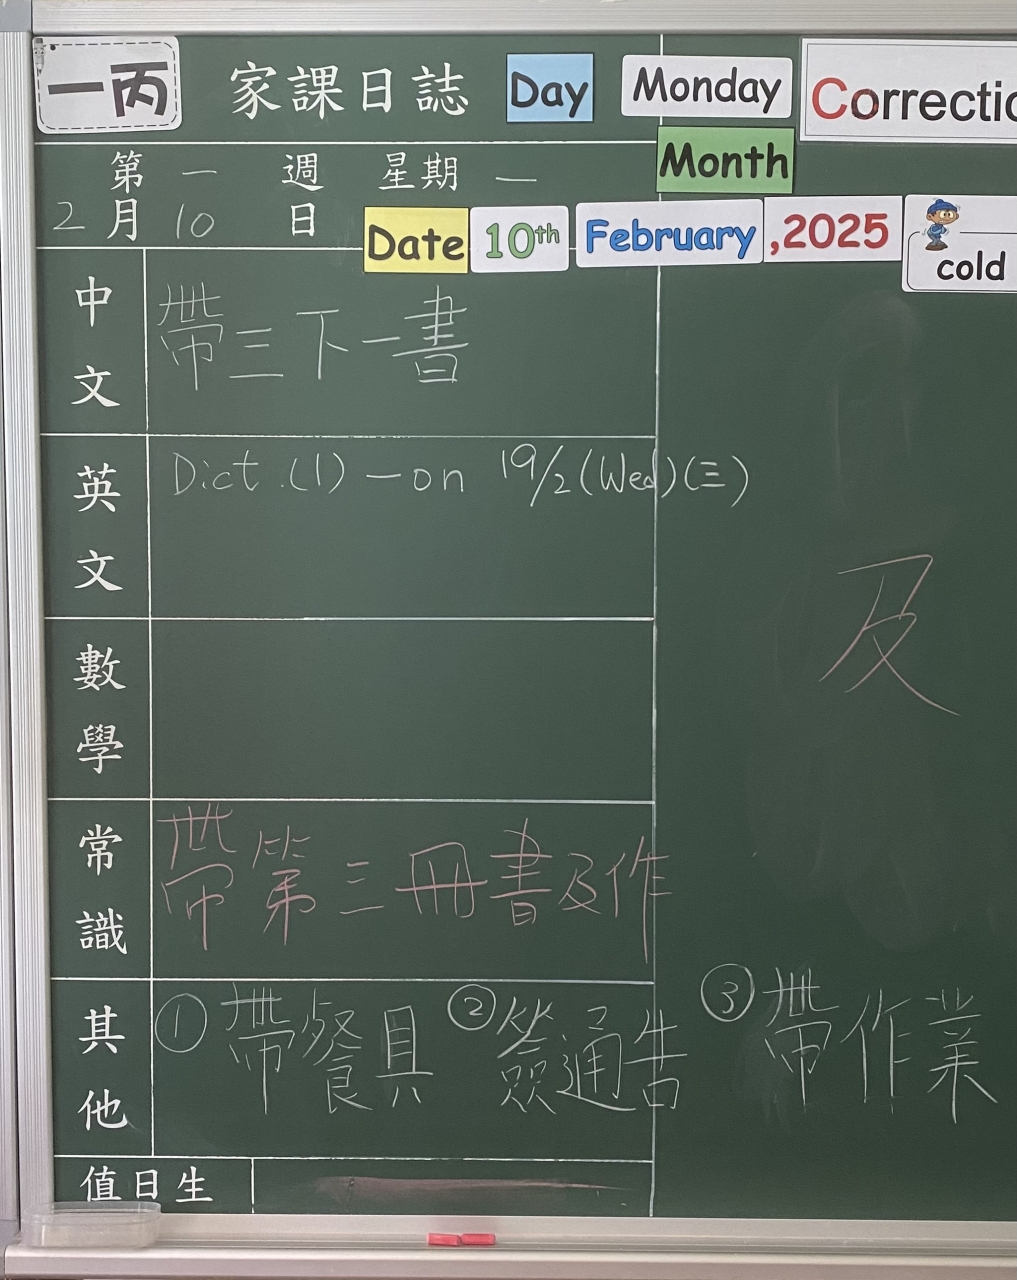 一丙 家課日誌 Day Monday Correctio
Month
第一週 星期一
2月10日 Date 10th February ,2025 cold
中文 帶三下一書
英文 Dict.(1) — on 19/2 (Wed)(三)
及
數學
常識 帶第三冊書及作
其他 ① 帶餐具 ② 簽通告 ③ 帶作業
值日生